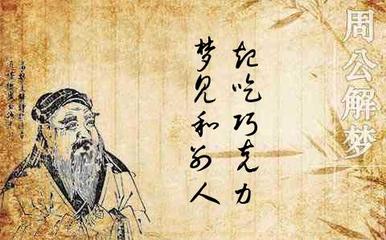 周公解梦
梦见和别人
起吃巧克力